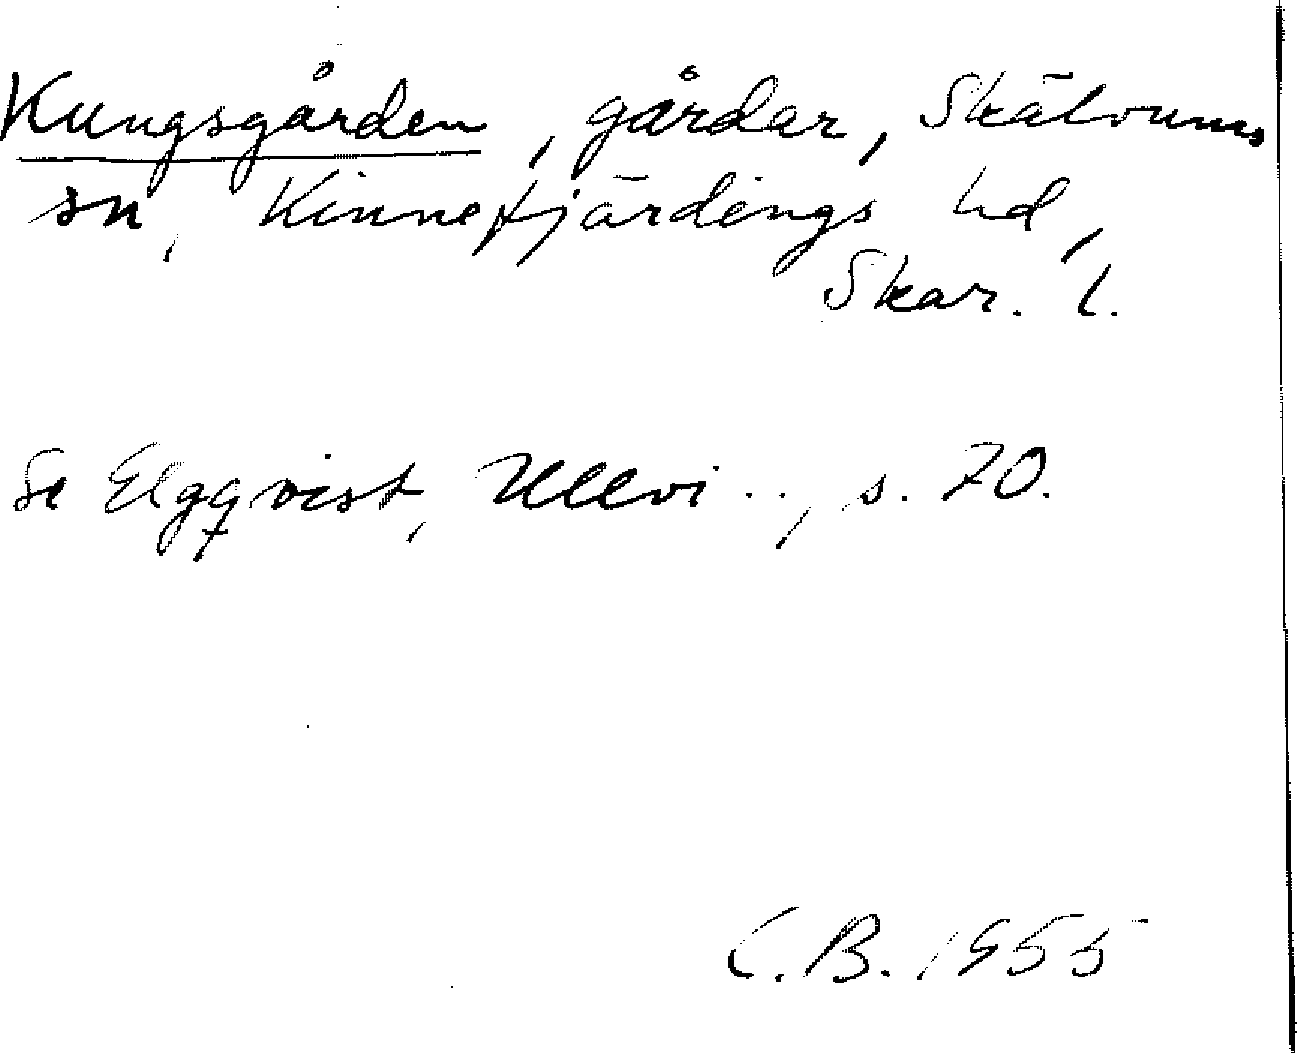 Kungsgården, gårdar, Skälvums
sn, Kinnefjärdings hd,
Skar. l.
Se Elgqvist, Ullevi .., s. 70.
C.B. 1955